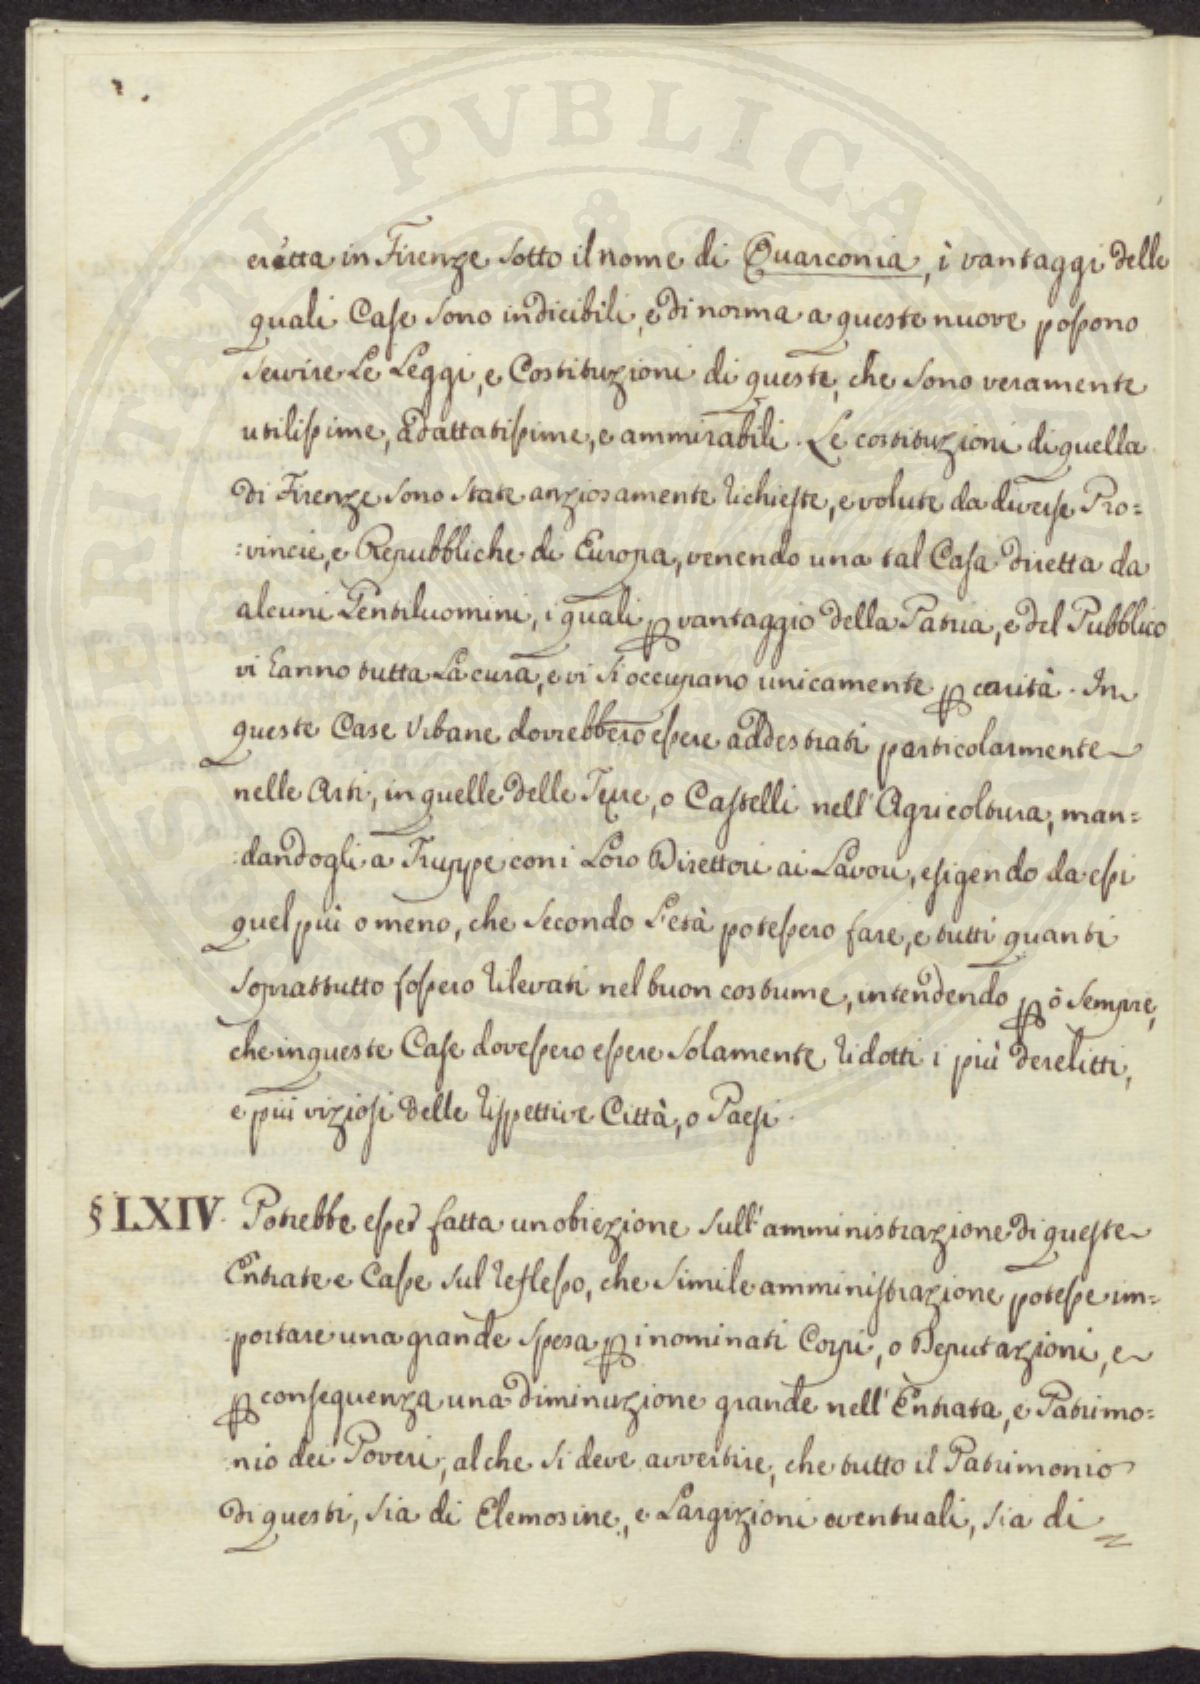 PROSPERITATI PVBLICAE
eretta in Firenze sotto il nome di Quarconia, i vantaggi delle
quali Case sono indicibili, e di norma a queste nuove possono
servire Le Leggi, e Costituzioni di queste, che sono veramente
utilissime, adattatissime, e ammirabili. Le costituzioni di quella
di Firenze sono state anziosamente richieste, e volute da diverse Pro=
:vincie, e Repubbliche di Europa, venendo una tal Casa diretta da
alcuni Gentiluomini, i quali p vantaggio della Patria, e del Pubblico
vi hanno tutta La cura, e vi si occupano unicamente p carità. In
queste Case Urbane dovrebbero essere addestrati particolarmente
nelle Arti, in quelle delle Terre, o Castelli nell'Agricoltura, man=
:dandogli a Truppe con i Loro Direttori ai Lavori, esigendo da essi
quel più o meno, che secondo L'età potessero fare, e tutti quanti
soprattutto fossero rilevati nel buon costume, intendendo pò sempre,
che in queste Case dovessero essere solamente ridotti i più derelitti,
e più viziosi delle rispettive Città, o Paesi.
§ LXIV. Potrebbe esser fatta un obiezione sull'amministrazione di queste
Entrate e Casse sul riflesso, che simile amministrazione potesse im=
portare una grande spesa p i nominati Corpi, o Deputazioni, e
p conseguenza una diminuzione grande nell'Entrata, e Patrimo=
nio dei Poveri, al che si deve avvertire, che tutto il Patrimonio
di questi, sia di Elemosine, e Largizioni eventuali, sia di